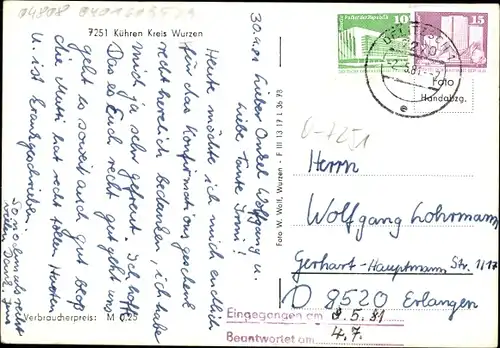 04808 0401603529
7251 Kühren Kreis Wurzen
30.4.81 Lieber Onkel Wolfgang u.
liebe Tante Irmi!
Heute möchte ich mich endlich
für das Konfirmationsgeschenk
recht herzlich bedanken, ich habe
mich ja sehr gefreut. Ich hoffe
Das es Euch recht gut geht uns
geht es soweit auch gut bloß
die Mutti hat recht tollen Husten
u. ist krankgeschrieben.
So nochmals recht
vielen Dank. Jens
Verbraucherpreis: M 0,25
Foto W. Wolf, Wurzen - F III 13 17 L 36 78
10
15
Foto
Handabzg.
0-7251
Herrn
Wolfgang Lohrmann
Gerhart-Hauptmann Str. 1/17
D 8520 Erlangen
Eingegangen am 9.5.81
Beantwortet am 4.7.